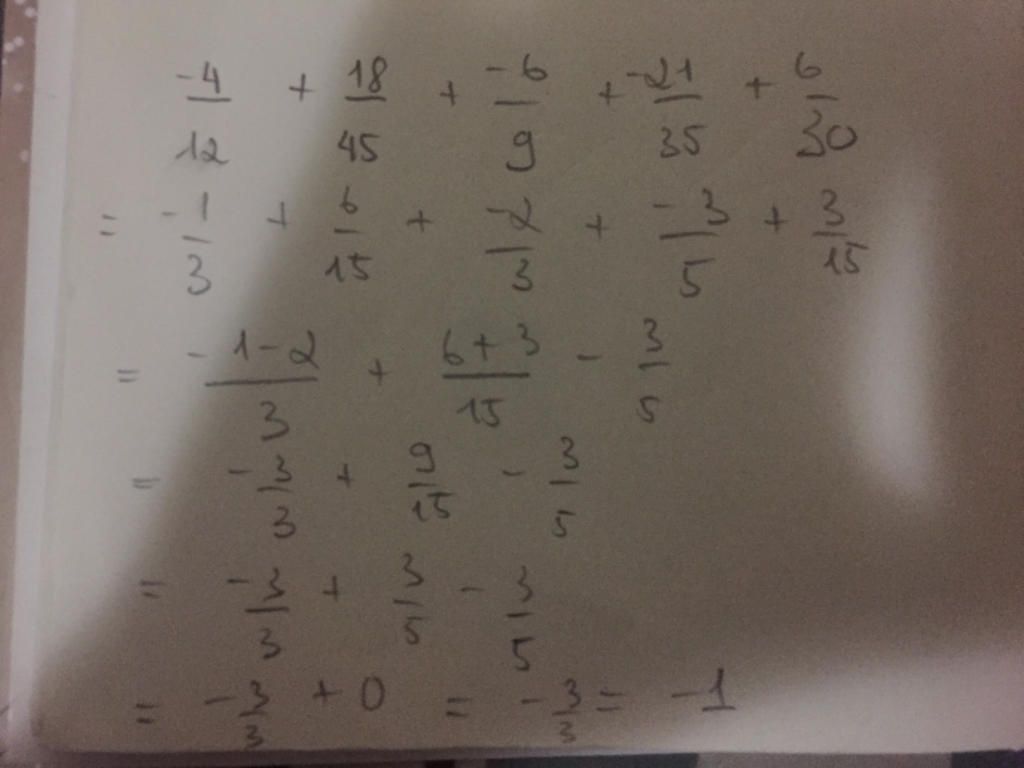 -4/12 + 18/45 + -6/9 + -21/35 + 6/30
= -1/3 + 6/15 + -2/3 + -3/5 + 3/15
= -1-2/3 + 6+3/15 - 3/5
= -3/3 + 9/15 - 3/5
= -3/3 + 3/5 - 3/5
= -3/3 + 0 = -3/3 = -1